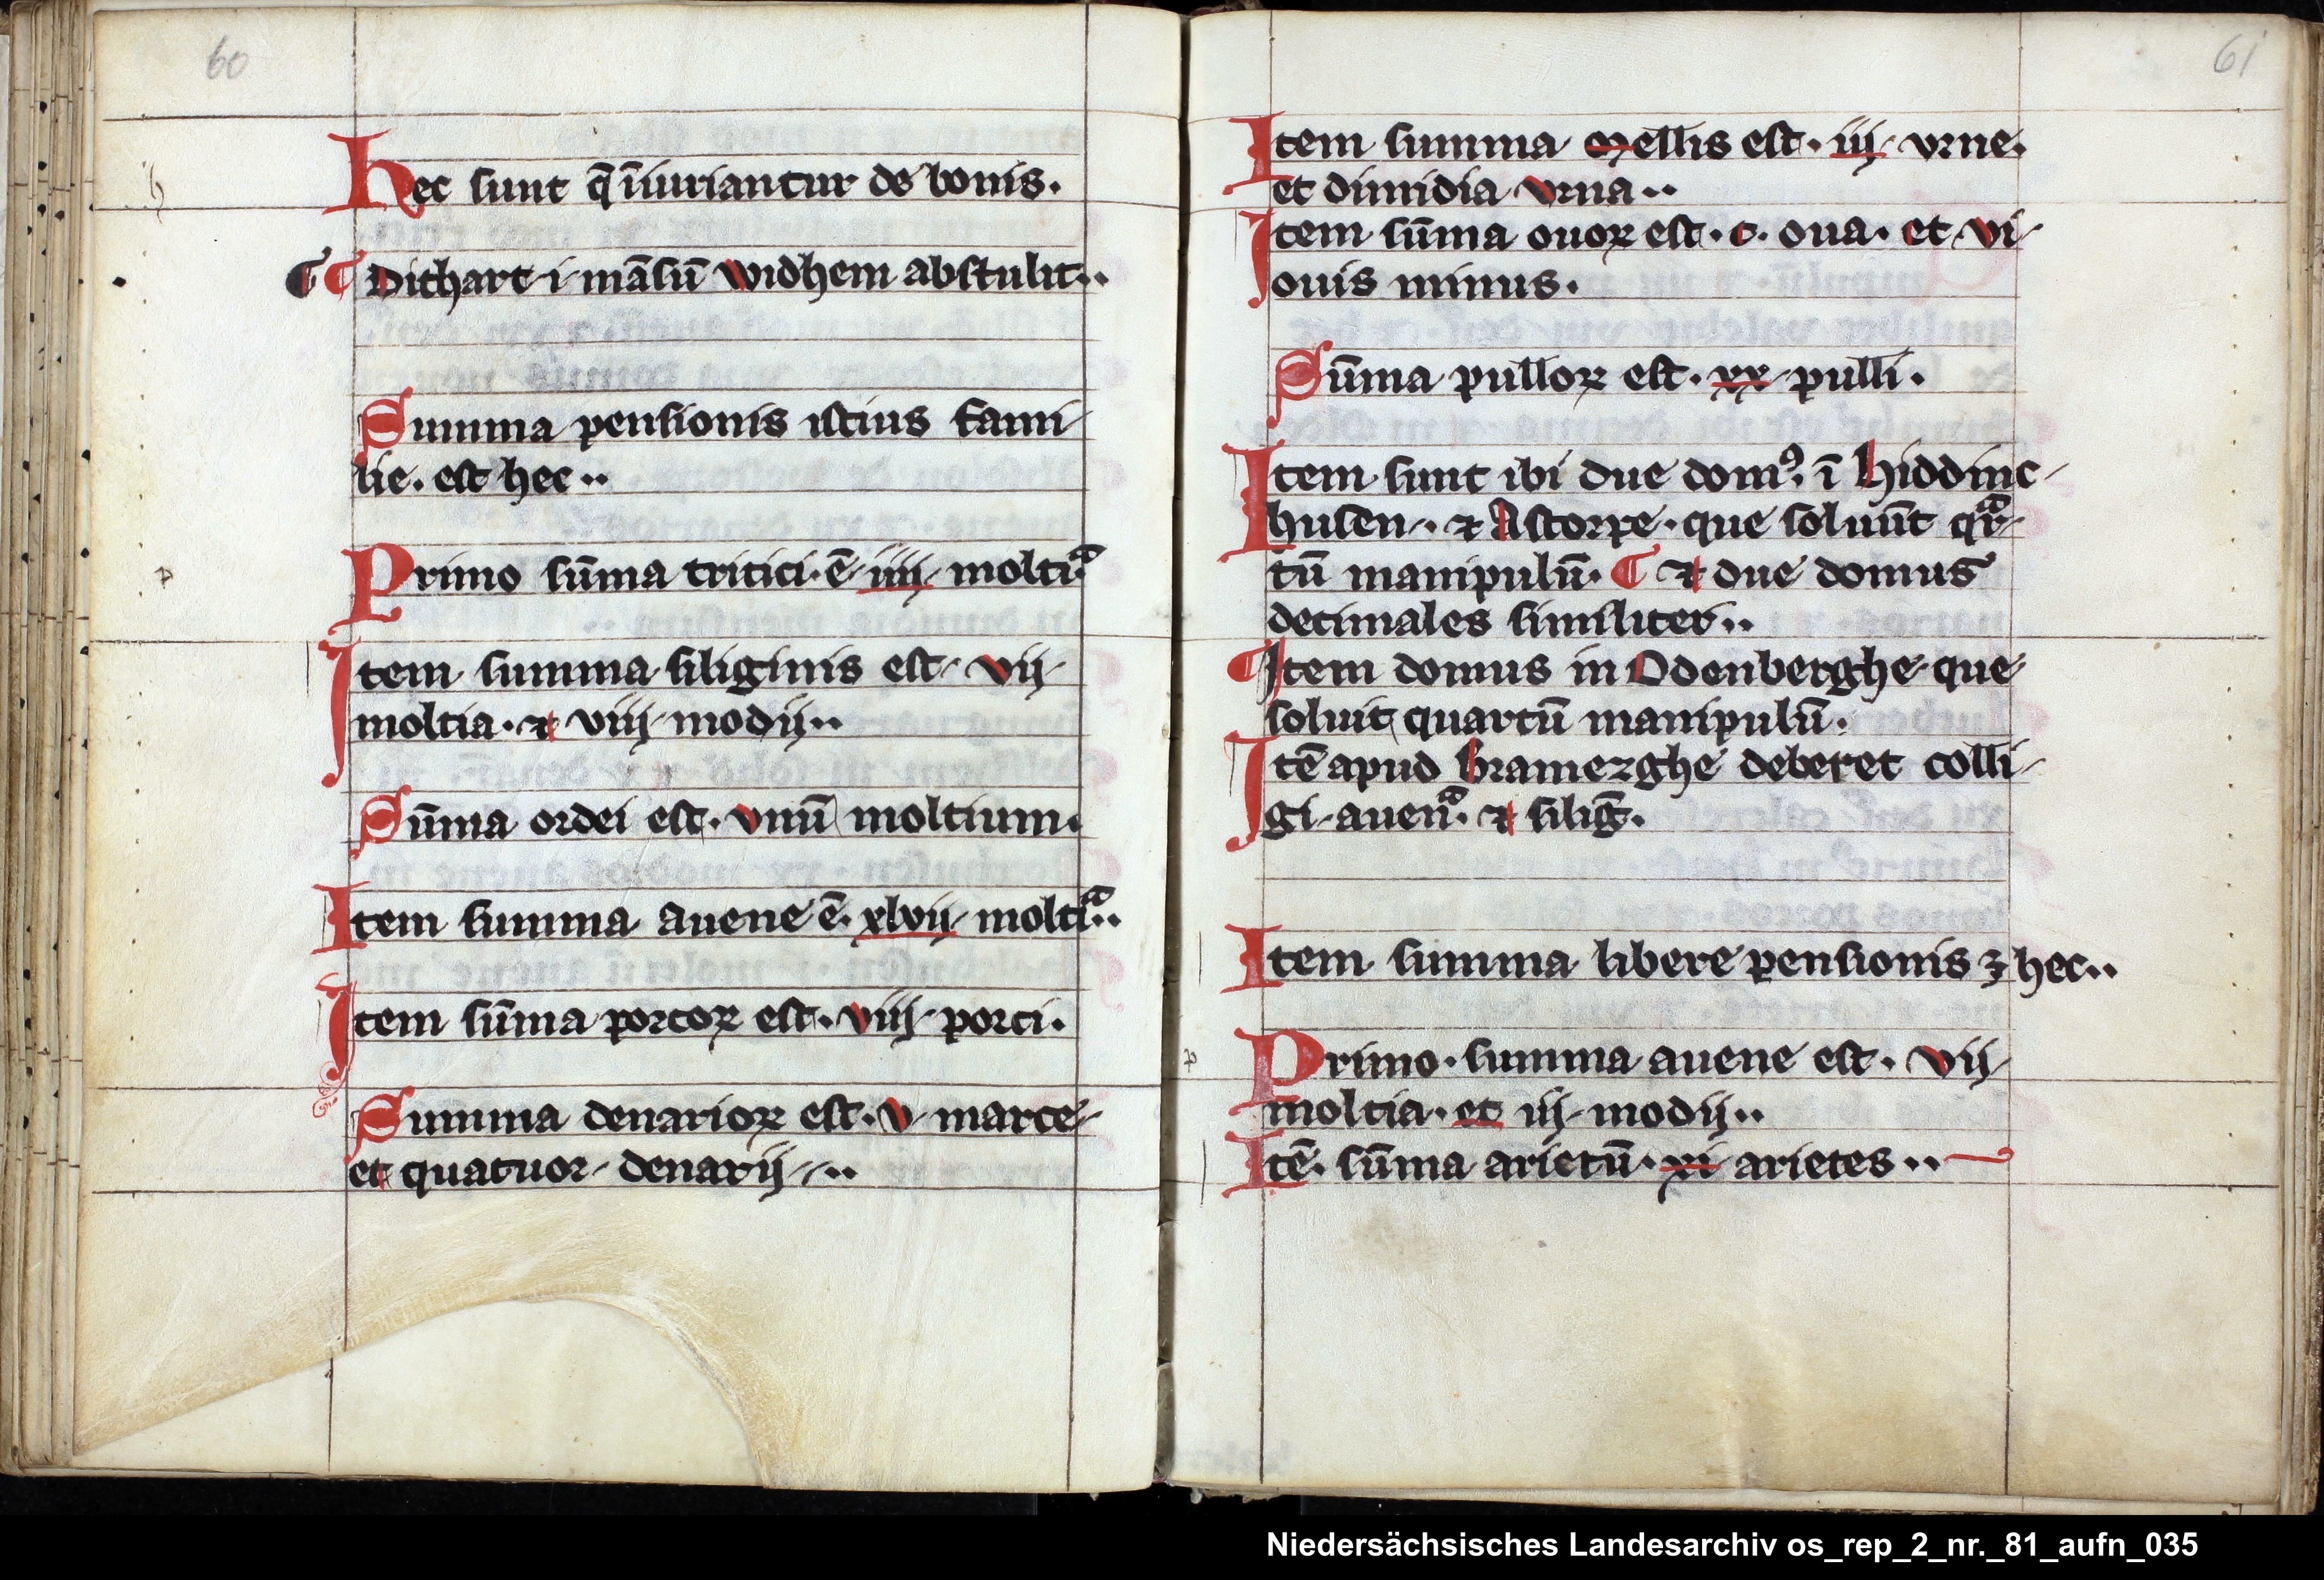 60
Hec sunt q̄ īiuriantur de bonis.
¶ ¶ Dithart i māsū widhem abstulit..
Summa pensionis istius fami
lie. est hec..
Primo sūma tritici. ē. iiij. moltiᵃ.
Item summa siliginis est vij
moltia. ⁊ viij modij..
Sūma ordei est. vnū moltium.
Item summa avene ē. xlvij moltiᵃ..
Item sūma porcoꝝ est. viij porci.
Summa denarioꝝ est. v marce
et quatuor denarij..
61
Item summa mellis est. iij vrne.
et dimidia vrna..
Item sūma ouoꝝ est. c. oua. et vi
ouis minus.
Sūma pulloꝝ est. xx pulli.
Item sunt ibi due domꝰ. ī hiddinc
husen. ⁊ Astorpe. que soluūt qᵃr
tū manipulū. ¶ ⁊ due domus
decimales similiter..
¶ Item domus in Odenberghe que
soluit quartū manipulū.
Itē apud bramezghe deberet colli
gi auenᵃ. ⁊ silig̅.
Item summa libere pensionis ꝫ hec..
Primo. summa auene est. vij
moltia. et iij modij..
Itē. sūma arietū. xi arietes..
Niedersächsisches Landesarchiv os_rep_2_nr._81_aufn_035